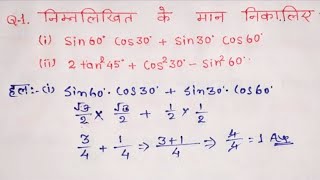 Q.1. निम्नलिखित के मान निकालिए
(i) Sin60° Cos30° + Sin30° Cos60°
(ii) 2tan²45° + Cos²30° - Sin²60°
हल:- (i) Sin60°. Cos30° + Sin30°. Cos60°
√3/2 × √3/2 + 1/2 × 1/2
3/4 + 1/4 ⇒ 3+1/4 ⇒ 4/4 = 1 Ans